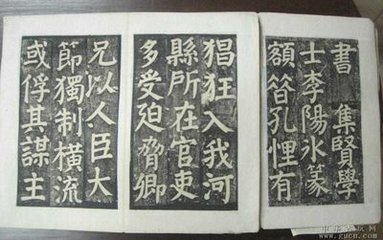 書 集賢學
士李陽冰篆
額 昔孔悝有
猖狂入我河
縣所在官吏
多受迫脅卿
兄以人臣大
節獨制橫流
或俘其謀主
www.gucn.com